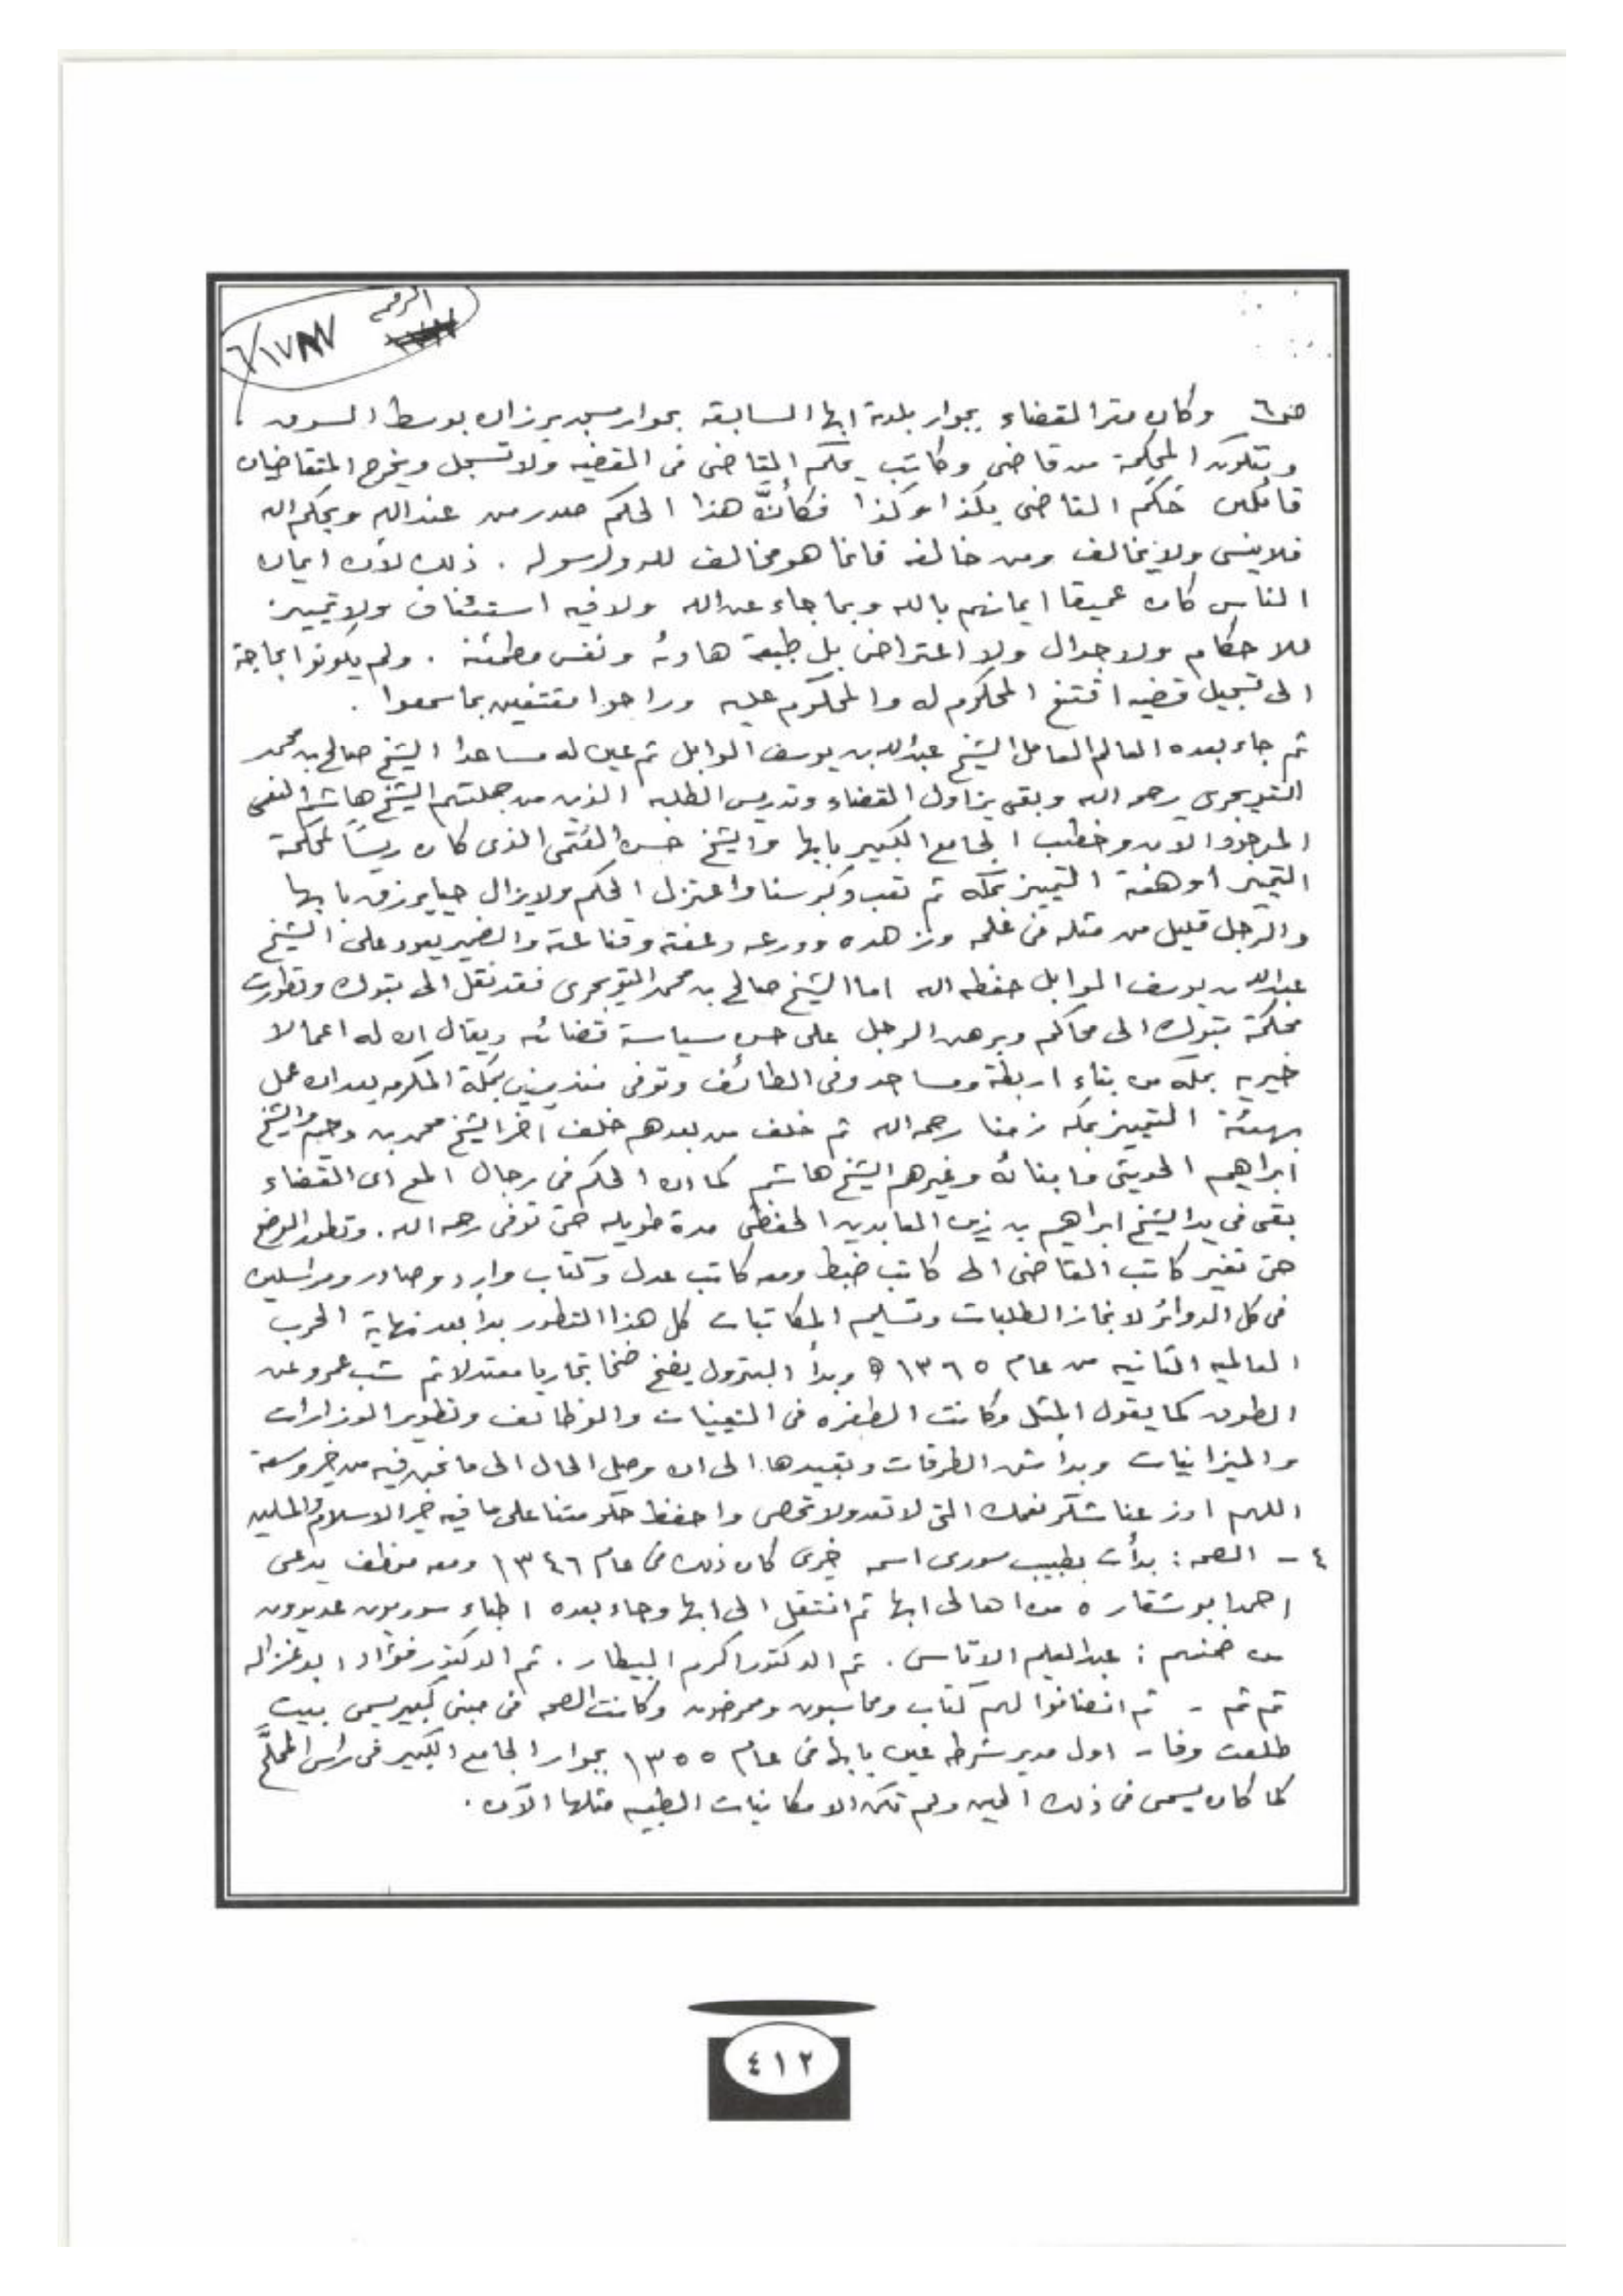 الرقم
ص٦ وكان مقر القضاء بجوار بلدية ابها السابقه بجوار مسجد برزان بوسط السوق
وتتكون المحكمة من قاضى وكاتب يحكم القاضى فى القضيه ولا تسجل ويخرج المتقاضيان
قائلين حَكَم القاضى بكذا وكذا فكأنَّ هذا الحكم صدر من عند الله وبحكم الله
فلاينسى ولايخالف ومن خالفه فانما هو مخالف لله ولرسوله . ذلك لأن ايمان
الناس كان عميقا ايمانهم بالله وبما جاء عن الله ولا فيه استئناف ولا تمييز
للاحكام ولا جدال ولا اعتراض بل طبيعة هادئه ونفس مطمئنه . ولم يكونوا بحاجة
الى تسجيل قضيه اقتنع المحكوم له والمحكوم عليه وراحوا مقتنعين بما سمعوا .
ثم جاء بعده العالم العامل الشيخ عبدالله بن يوسف الوابل ثم عين له مساعدا الشيخ صالح بن محمد
التويجرى رحمه الله وبقى يزاول القضاء وتدريس الطلبه الذين من جملتهم الشيخ هاشم النعمى
الموجود الان وخطيب الجامع الكبير بابها والشيخ حسن العُتمى الذى كان ريسًا لمحكمة
التمييز أو هيئة التمييز بمكه ثم تعب وكبر سنا واعتزل الحكم ولايزال حيا يرزق بابها
والرجل قليل من مثله فى علمه وزهده وورعه وعفته وقناعته والضمير يعود على الشيخ
عبدالله بن يوسف الوابل حفظه الله اما الشيخ صالح بن محمد التويجرى فقد نقل الى تبوك وتطورت
محكمة تبوك الى محاكم وبرهن الرجل على حسن سياسة قضائه ويقال ان له اعمالا
خيريه بمكه من بناء اربطة ومساجد وفى الطائف وتوفى منذ سنين بمكة المكرمه بعد ان عمل
بهيئة التمييز بمكه زمنا رحمه الله ثم خلف من بعدهم خلف آخر الشيخ محمد بن والشيخ
ابراهيم الحديثى وابنائه وغيرهم الشيخ هاشم كما ان الحكم فى رجال المع اى القضاء
بقى فى يد الشيخ ابراهيم بن زين العابدين الحفظى مدة طويله حتى توفى رحمه الله . وتطور الوضع
حتى تغير كاتب القاضى الى كاتب ضبط ومعه كاتب عدل وكتاب وارد وصادر ومراسلين
فى كل الدوائر لانجاز الطلبات وتسليم المكاتبات كل هذا التطور بدأ بعد نهاية الحرب
العالميه الثانيه من عام ١٣٦٥ ه وبدأ البترول يضخ ضخا تجاريا معتدلا ثم شب عمرو عن
الطوق كما يقول المثل وكانت الطفره فى التعيينات والوظائف وتطوير الوزارات
والميزانيات وبدأ شق الطرقات وتعبيدها الى ان وصل الحال الى ما نحن فيه من خير وسعة
اللهم اوزعنا شكر نعمك التى لا تعد ولا تحصى واحفظ حكومتنا على ما فيه خير الاسلام والمسلمين
٤ - الصحه : بدأت بطبيب سورى اسمه خيرى كان ذلك فى عام ١٣٤٦ ومعه موظف يدعى
احمد ابو شقاره من اهالى ابها ثم انتقل الى ابها وجاء بعده اطباء سوريون عديدون
من ضمنهم : عبدالعليم الاتاسى . ثم الدكتور اكرم البيطار . ثم الدكتور فؤاد ابو غزاله
ثم ثم - ثم انضافوا لهم كتاب ومحاسبون وممرضون وكانت الصحه فى مبنى كبير يسمى بيت
طلعت وفا - اول مدير شرطه عين بابها فى عام ١٣٥٥ بجوار الجامع الكبير فى راس المملَّح
كما كان يسمى فى ذلك الحين ولم تكن الامكانيات الطبيه مثلها الآن .
٤١٢